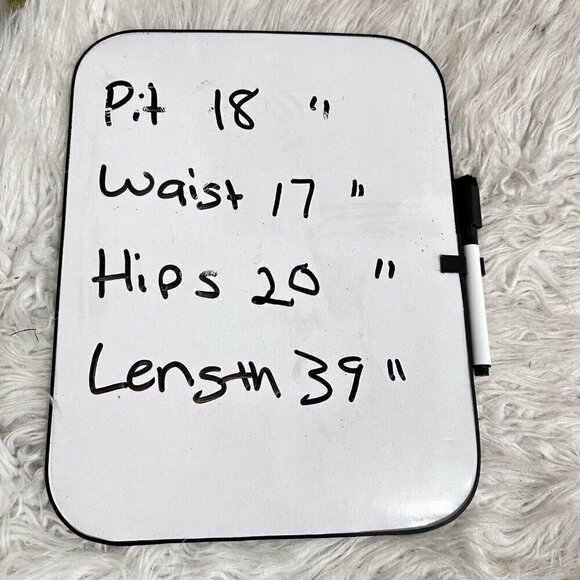 Pit 18 "
Waist 17 "
Hips 20 "
Length 39 "